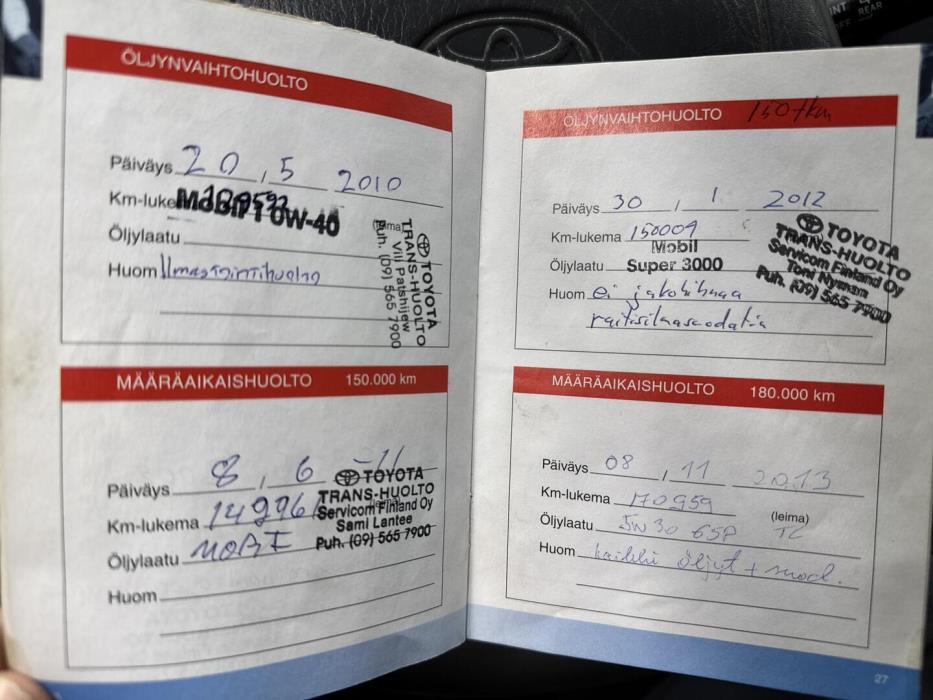 ÖLJYNVAIHTOHUOLTO
Päiväys 20 , 5 2010
Km-luke
Mobil 1 0W-40
Öljylaatu
Huom Ilmastointihuolto
TOYOTA
TRANS-HUOLTO
Vili Patshijew
Puh. (09) 565 7900
MÄÄRÄAIKAISHUOLTO 150.000 km
Päiväys 8 , 6 -11
Km-lukema
Öljylaatu
Huom
TOYOTA
TRANS-HUOLTO
Servicom Finland Oy
Sami Lantee
Puh. (09) 565 7900
ÖLJYNVAIHTOHUOLTO 150tkm
Päiväys 30 , 1 2012
Km-lukema 150009
Mobil
Öljylaatu Super 3000
Huom ei jakohihnaa
TOYOTA
TRANS-HUOLTO
Servicom Finland Oy
Toni Nyman
Puh. (09) 565 7900
MÄÄRÄAIKAISHUOLTO 180.000 km
Päiväys 08 , 11 2013
Km-lukema 170959
(leima)
Öljylaatu 5W30 TC
Huom kaikki öljyt + suod.
27